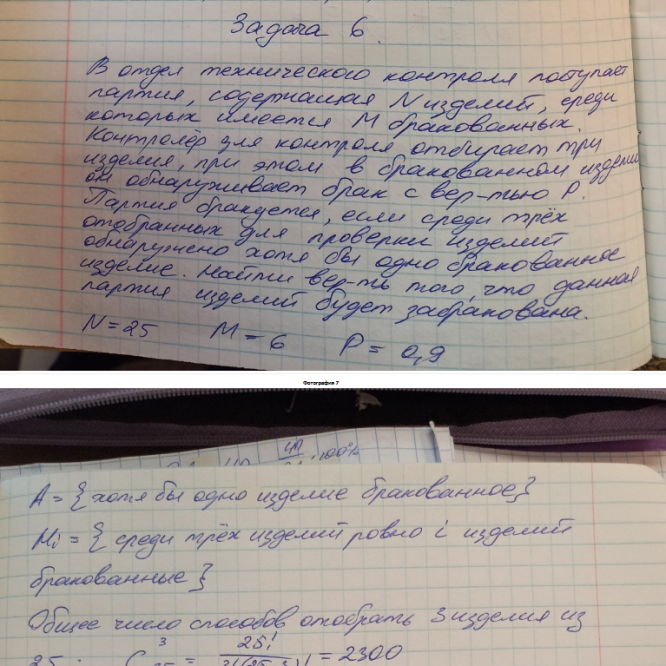 Задача 6.
В отдел технического контроля поступает
партия, содержащая N изделий, среди
которых имеется М бракованных.
Контролёр для контроля отбирает три
изделия, при этом в бракованном изделии
он обнаруживает брак с вер-тью Р.
Партия бракуется, если среди трёх
отобранных для проверки изделий
обнаружено хотя бы одно бракованное
изделие. Найти вер-ть того, что данная
партия изделий будет забракована.
N = 25 M = 6 P = 0,9
Фотография 7
100%
A = { хотя бы одно изделие бракованное }
Hi = { среди трёх изделий ровно i изделий
бракованные }
Общее число способов отобрать 3 изделия из
25: = 25! = 2300